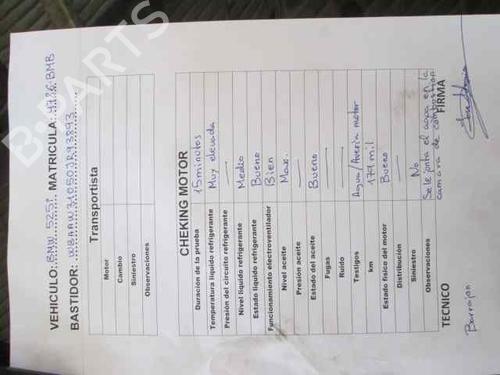 B-PARTS
VEHICULO: BMW 525I MATRICULA:
BASTIDOR:
Transportista
Motor
Cambio
Siniestro
Observaciones
CHEKING MOTOR
Duración de la prueba 15 minutos
Temperatura liquido refrigerante Muy elevada
Presión del circuito refrigerante —
Nivel liquido refrigerante Medio
Estado liquido refrigerante Bueno
Funcionamiento electroventilador Bien
Nivel aceite Max.
Presión del aceite —
Estado del aceite Bueno
Fugas —
Ruido —
Testigos Agua/Averia motor
km 179 mil
Estado fisico del motor Bueno
Distribución —
Siniestro No
Observaciones Se le junta el agua en la
camara de combustion
TECNICO FIRMA